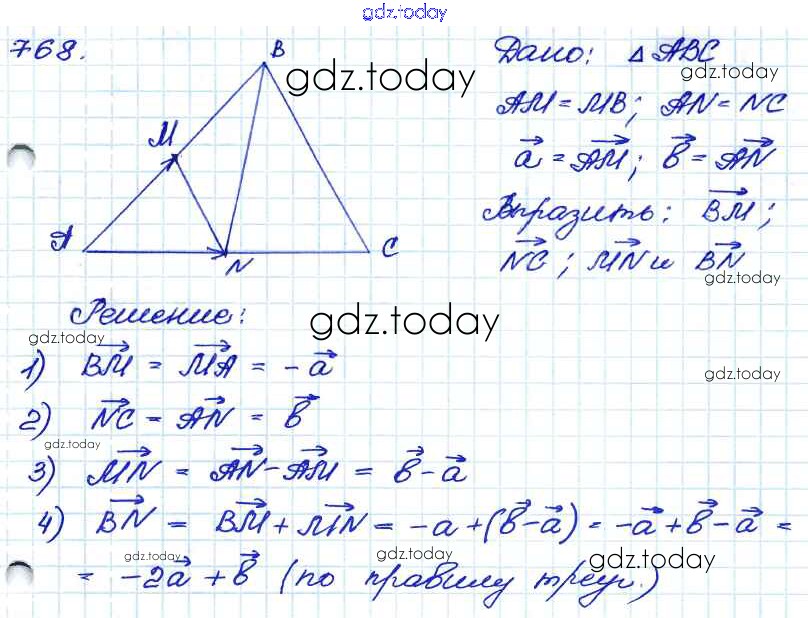 gdz.today
768.
B
M
A
N
C
gdz.today
Дано: △ ABC
gdz.today
AM = MB; AN = NC
a⃗ = AM⃗; b⃗ = AN⃗
Выразить: BM⃗;
NC⃗; MN⃗ и BN⃗
gdz.today
Решение:
gdz.today
gdz.today
1) BM⃗ = MA⃗ = -a⃗
gdz.today
2) NC⃗ = AN⃗ = b⃗
gdz.today
3) MN⃗ = AN⃗ - AM⃗ = b⃗ - a⃗
4) BN⃗ = BM⃗ + MN⃗ = -a + (b⃗ - a⃗) = -a⃗ + b⃗ - a⃗ =
gdz.today
gdz.today
gdz.today
= -2a⃗ + b⃗ (по правилу треуг.)